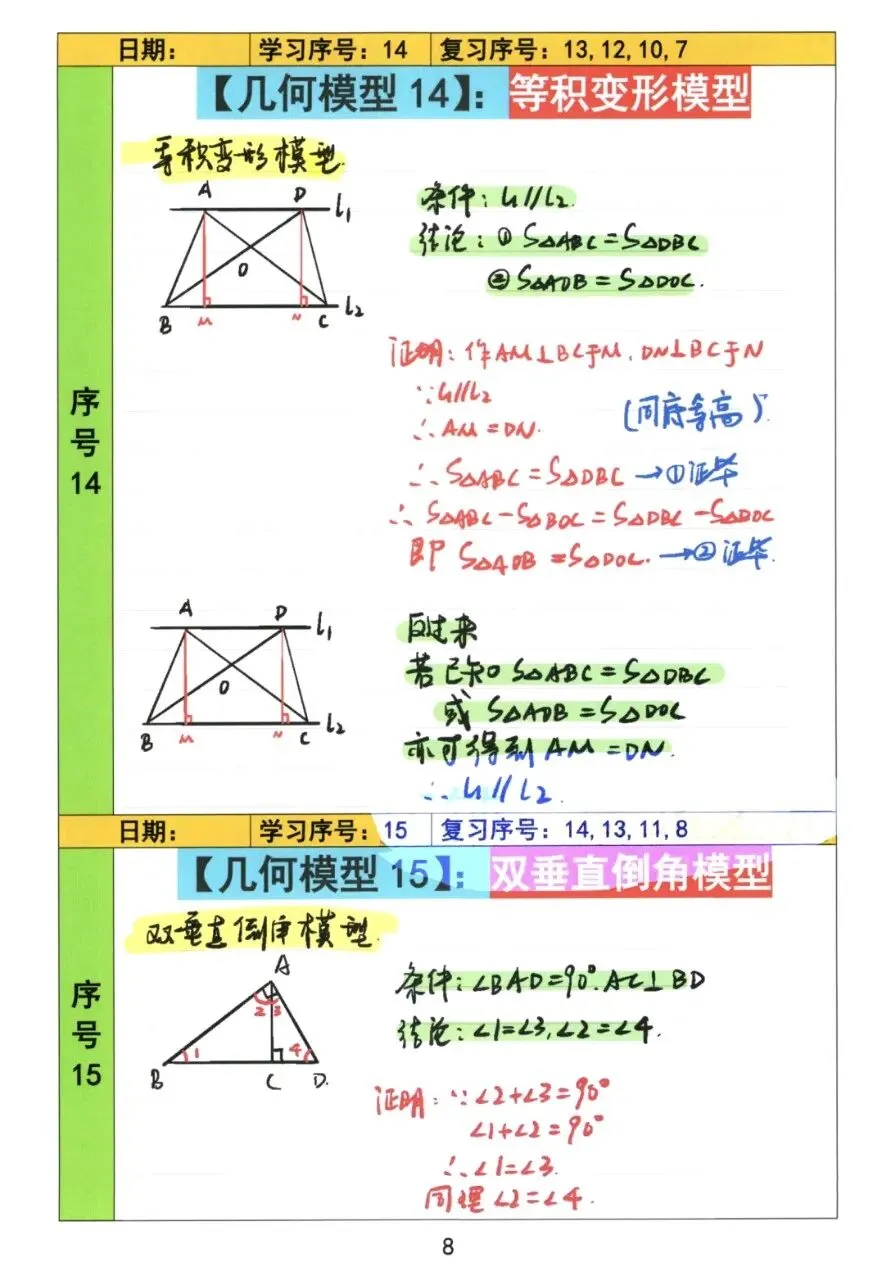 日期： 学习序号：14 复习序号：13,12,10,7
【几何模型 14】：等积变形模型
序号14
等积变形模型.
A D l₁
O
B M N C l₂
条件：l₁∥l₂.
结论：① S△ABC=S△DBC
② S△AOB=S△DOC.
证明：作AM⊥BC于M、DN⊥BC于N
∵l₁∥l₂
∴AM=DN. (同底等高)
∴S△ABC=S△DBC→①证毕
∴S△ABC-S△BOC=S△DBC-S△BOC
即 S△AOB=S△DOC.→②证毕.
A D l₁
O
B M N C l₂
反过来
若已知 S△ABC=S△DBC
或 S△AOB=S△DOC
亦可得到AM=DN.
∴l₁∥l₂.
日期： 学习序号：15 复习序号：14,13,11,8
【几何模型 15】：双垂直倒角模型
序号15
双垂直倒角模型.
A
2 3
1 4
B C D.
条件：∠BAD=90°.AC⊥BD
结论：∠1=∠3,∠2=∠4.
证明：∵∠2+∠3=90°
∠1+∠2=90°
∴∠1=∠3.
同理∠2=∠4.
8